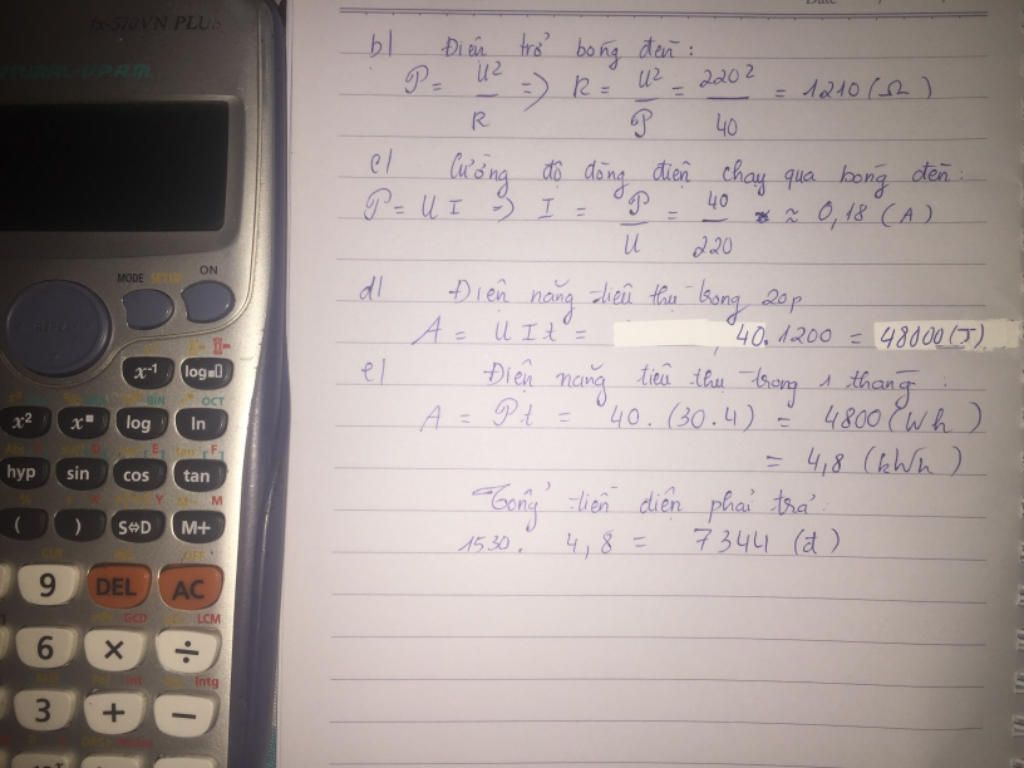 fx-570VN PLUS
NATURAL-V.P.A.M.
MODE SETUP ON
REPLAY
x⁻¹ log
x² x■ log ln
hyp sin cos tan
( ) S⇔D M+
9 DEL AC
GCD LCM
6 × ÷
Int Intg
3 + −
Date
b/ Điện trở bóng đèn:
P = U²/R => R = U²/P = 220²/40 = 1210 (Ω)
c/ Cường độ dòng điện chạy qua bóng đèn:
P = U I => I = P/U = 40/220 ≈ 0,18 (A)
d/ Điện năng tiêu thụ trong 20p
A = U I t = 40.1200 = 48000(J)
e/ Điện năng tiêu thụ trong 1 tháng:
A = Pt = 40.(30.4) = 4800(Wh)
= 4,8 (kWh)
Tổng tiền điện phải trả:
1530. 4,8 = 7344 (đ)